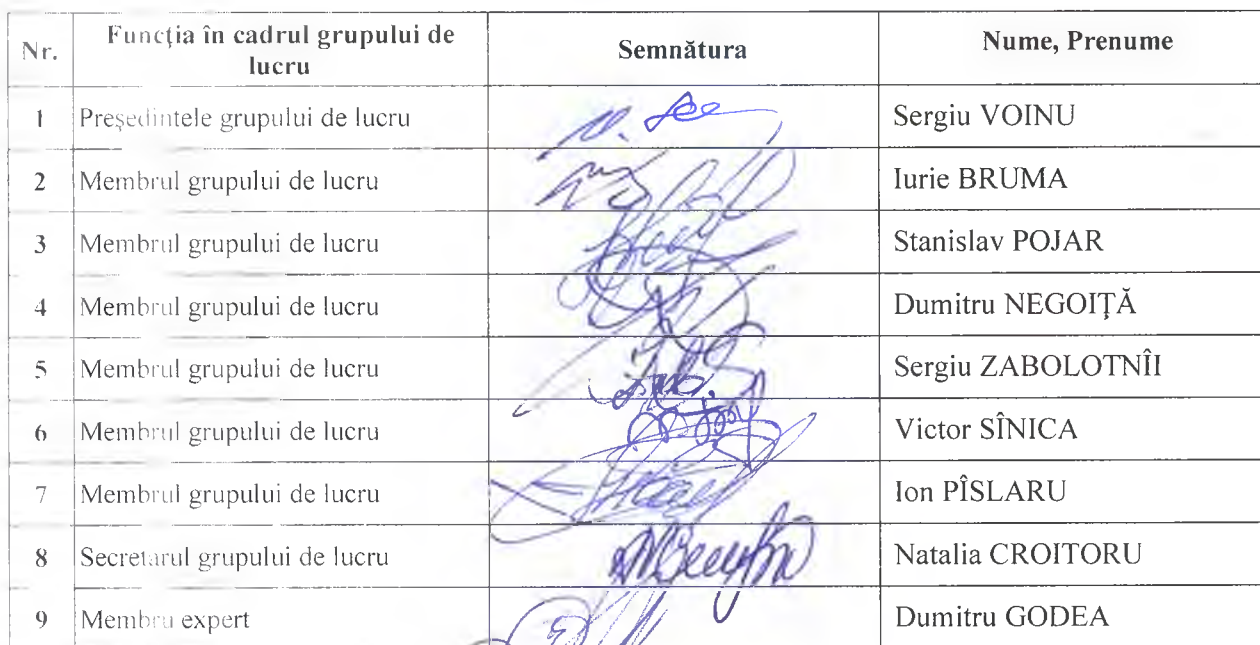 Nr. Funcția în cadrul grupului de lucru Semnătura Nume, Prenume
1 Președintele grupului de lucru Sergiu VOINU
2 Membrul grupului de lucru Iurie BRUMA
3 Membrul grupului de lucru Stanislav POJAR
4 Membrul grupului de lucru Dumitru NEGOIȚĂ
5 Membrul grupului de lucru Sergiu ZABOLOTNÎI
6 Membrul grupului de lucru Victor SÎNICA
7 Membrul grupului de lucru Ion PÎSLARU
8 Secretarul grupului de lucru Natalia CROITORU
9 Membru expert Dumitru GODEA